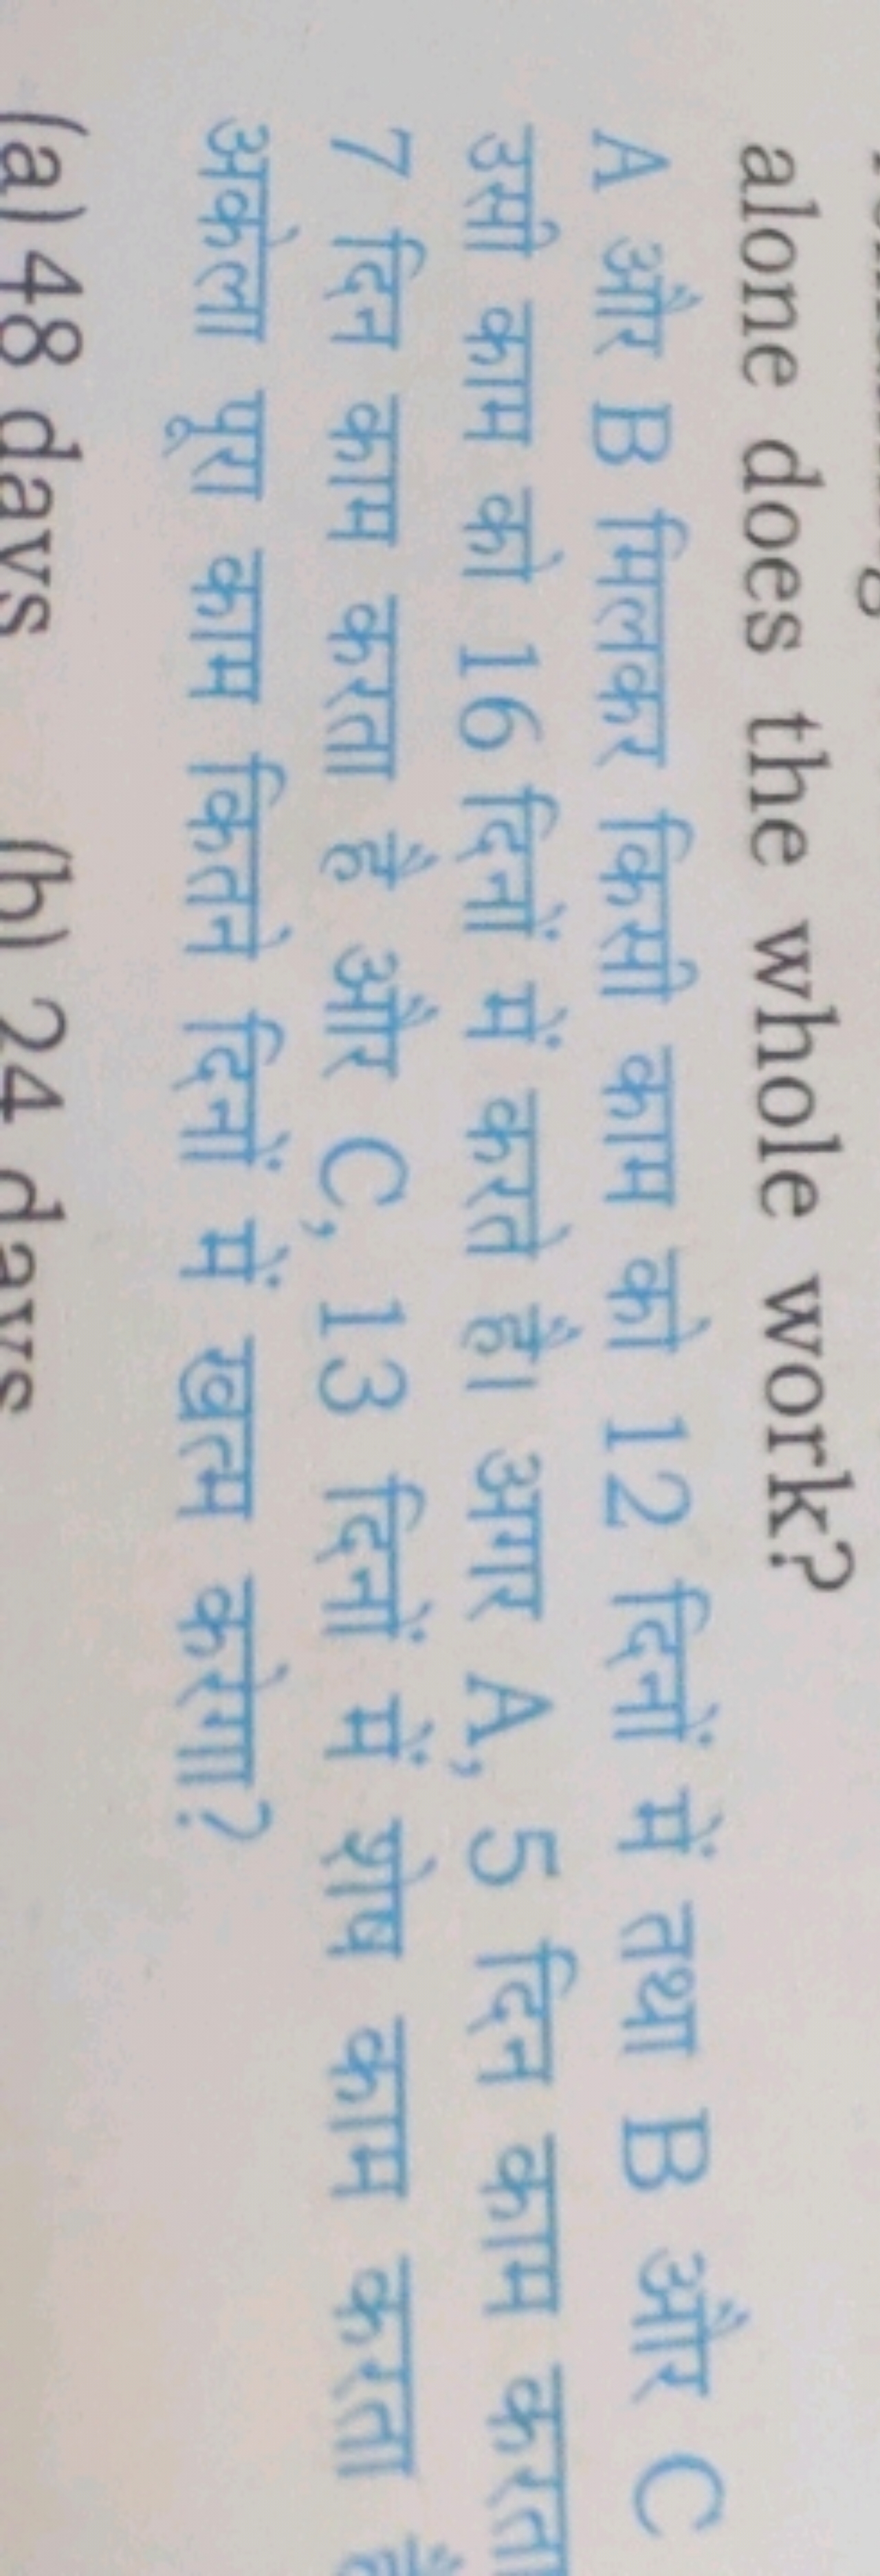 alone does the whole work?
A और B मिलकर किसी काम को 12 दिनों में तथा B और C
उसी काम को 16 दिनों में करते है। अगर A, 5 दिन काम करता
7 दिन काम करता है और C, 13 दिनों में शेष काम करता है
अकेला पूरा काम कितने दिनों में खत्म करेगा?
(a) 48 days (b) 24 days